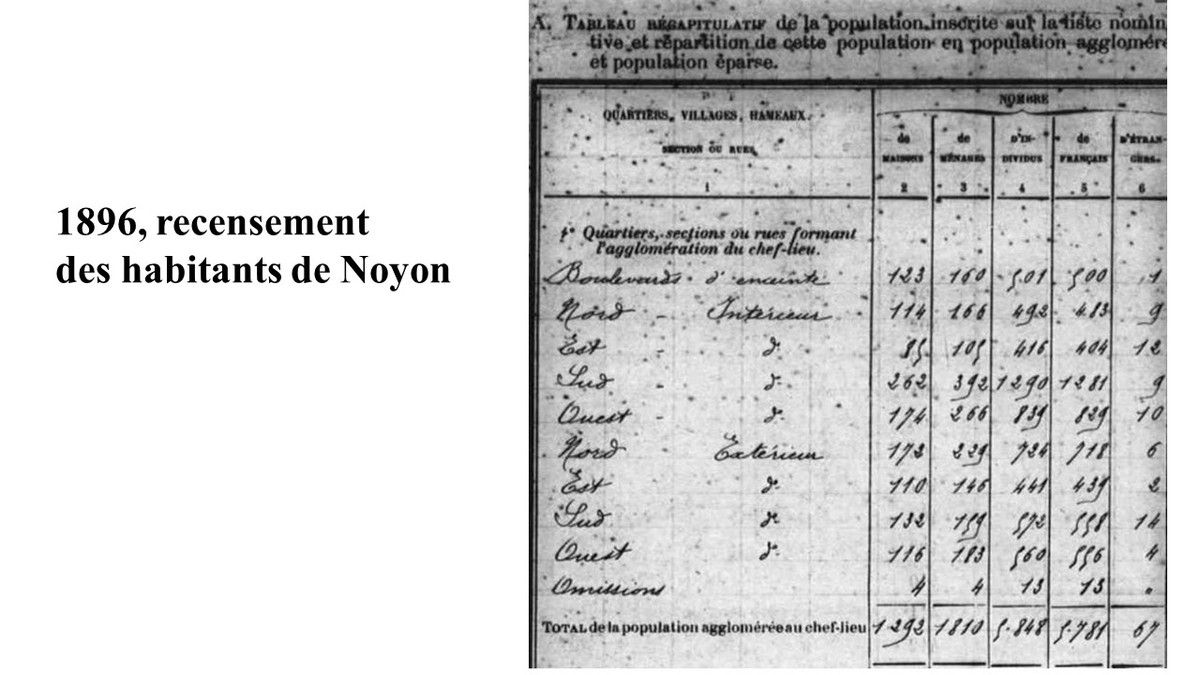 1896, recensement
des habitants de Noyon
A. TABLEAU RÉCAPITULATIF de la population inscrite sur la liste nomin
tive et répartition de cette population en population aggloméré
et population éparse.
QUARTIERS, VILLAGES, HAMEAUX.
SECTION OU RUES
1
NOMBRE
de MAISONS
2
de MÉNAGES
3
D'IN-
DIVIDUS
4
de FRANÇAIS
5
D'ÉTRAN-
GERS.
6
1° Quartiers, sections ou rues formant
l'agglomération du chef-lieu.
Boulevards d'enceinte 123 160 501 500 1
Nord - Intérieur 114 166 492 483 9
Est - d° 85 105 416 404 12
Sud - d° 262 392 1290 1281 9
Ouest - d° 174 266 839 829 10
Nord Extérieur 172 229 724 718 6
Est d° 110 146 441 439 2
Sud d° 132 159 572 558 14
Ouest d° 116 183 560 556 4
Omissions 4 4 13 13 "
TOTAL de la population agglomérée au chef-lieu 1292 1810 5.848 5.781 67